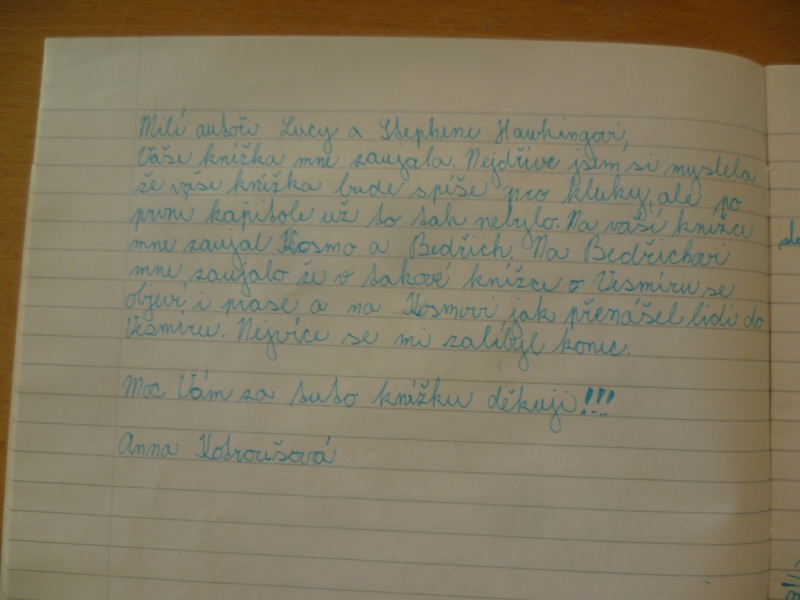 Milí autoři Lucy a Stephene Hawkingovi,
Vaše knížka mne zaujala. Nejdříve jsem si myslela
že vaše knížka bude spíše pro kluky, ale po
první kapitole už to tak nebylo. Na vaší knížce
mne zaujal Kosmo a Bedřich. Na Bedřichovi
mne zaujalo že v takové knížce o Vesmíru se
objeví i prase a na Kosmovi jak přenášel lidi do
Vesmíru. Nejvíce se mi zalíbyl konec.
Moc Vám za tuto knížku děkuji!!!
Anna Kotroušová